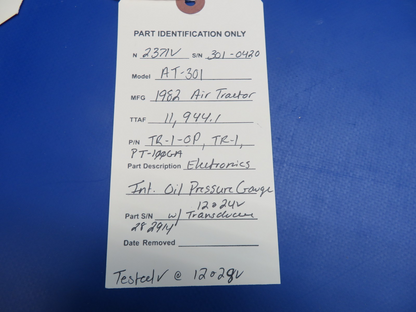 PART IDENTIFICATION ONLY
N 2371V S/N 301-0420
Model AT-301
MFG 1982 Air Tractor
TTAF 11,944.1
P/N TR-1-OP, TR-1,
PT-100GA
Part Description Electronics
Int. Oil Pressure Gauge
12024V
Part S/N w/ Transducer
28 2914
Date Removed
Tested V @ 12028V